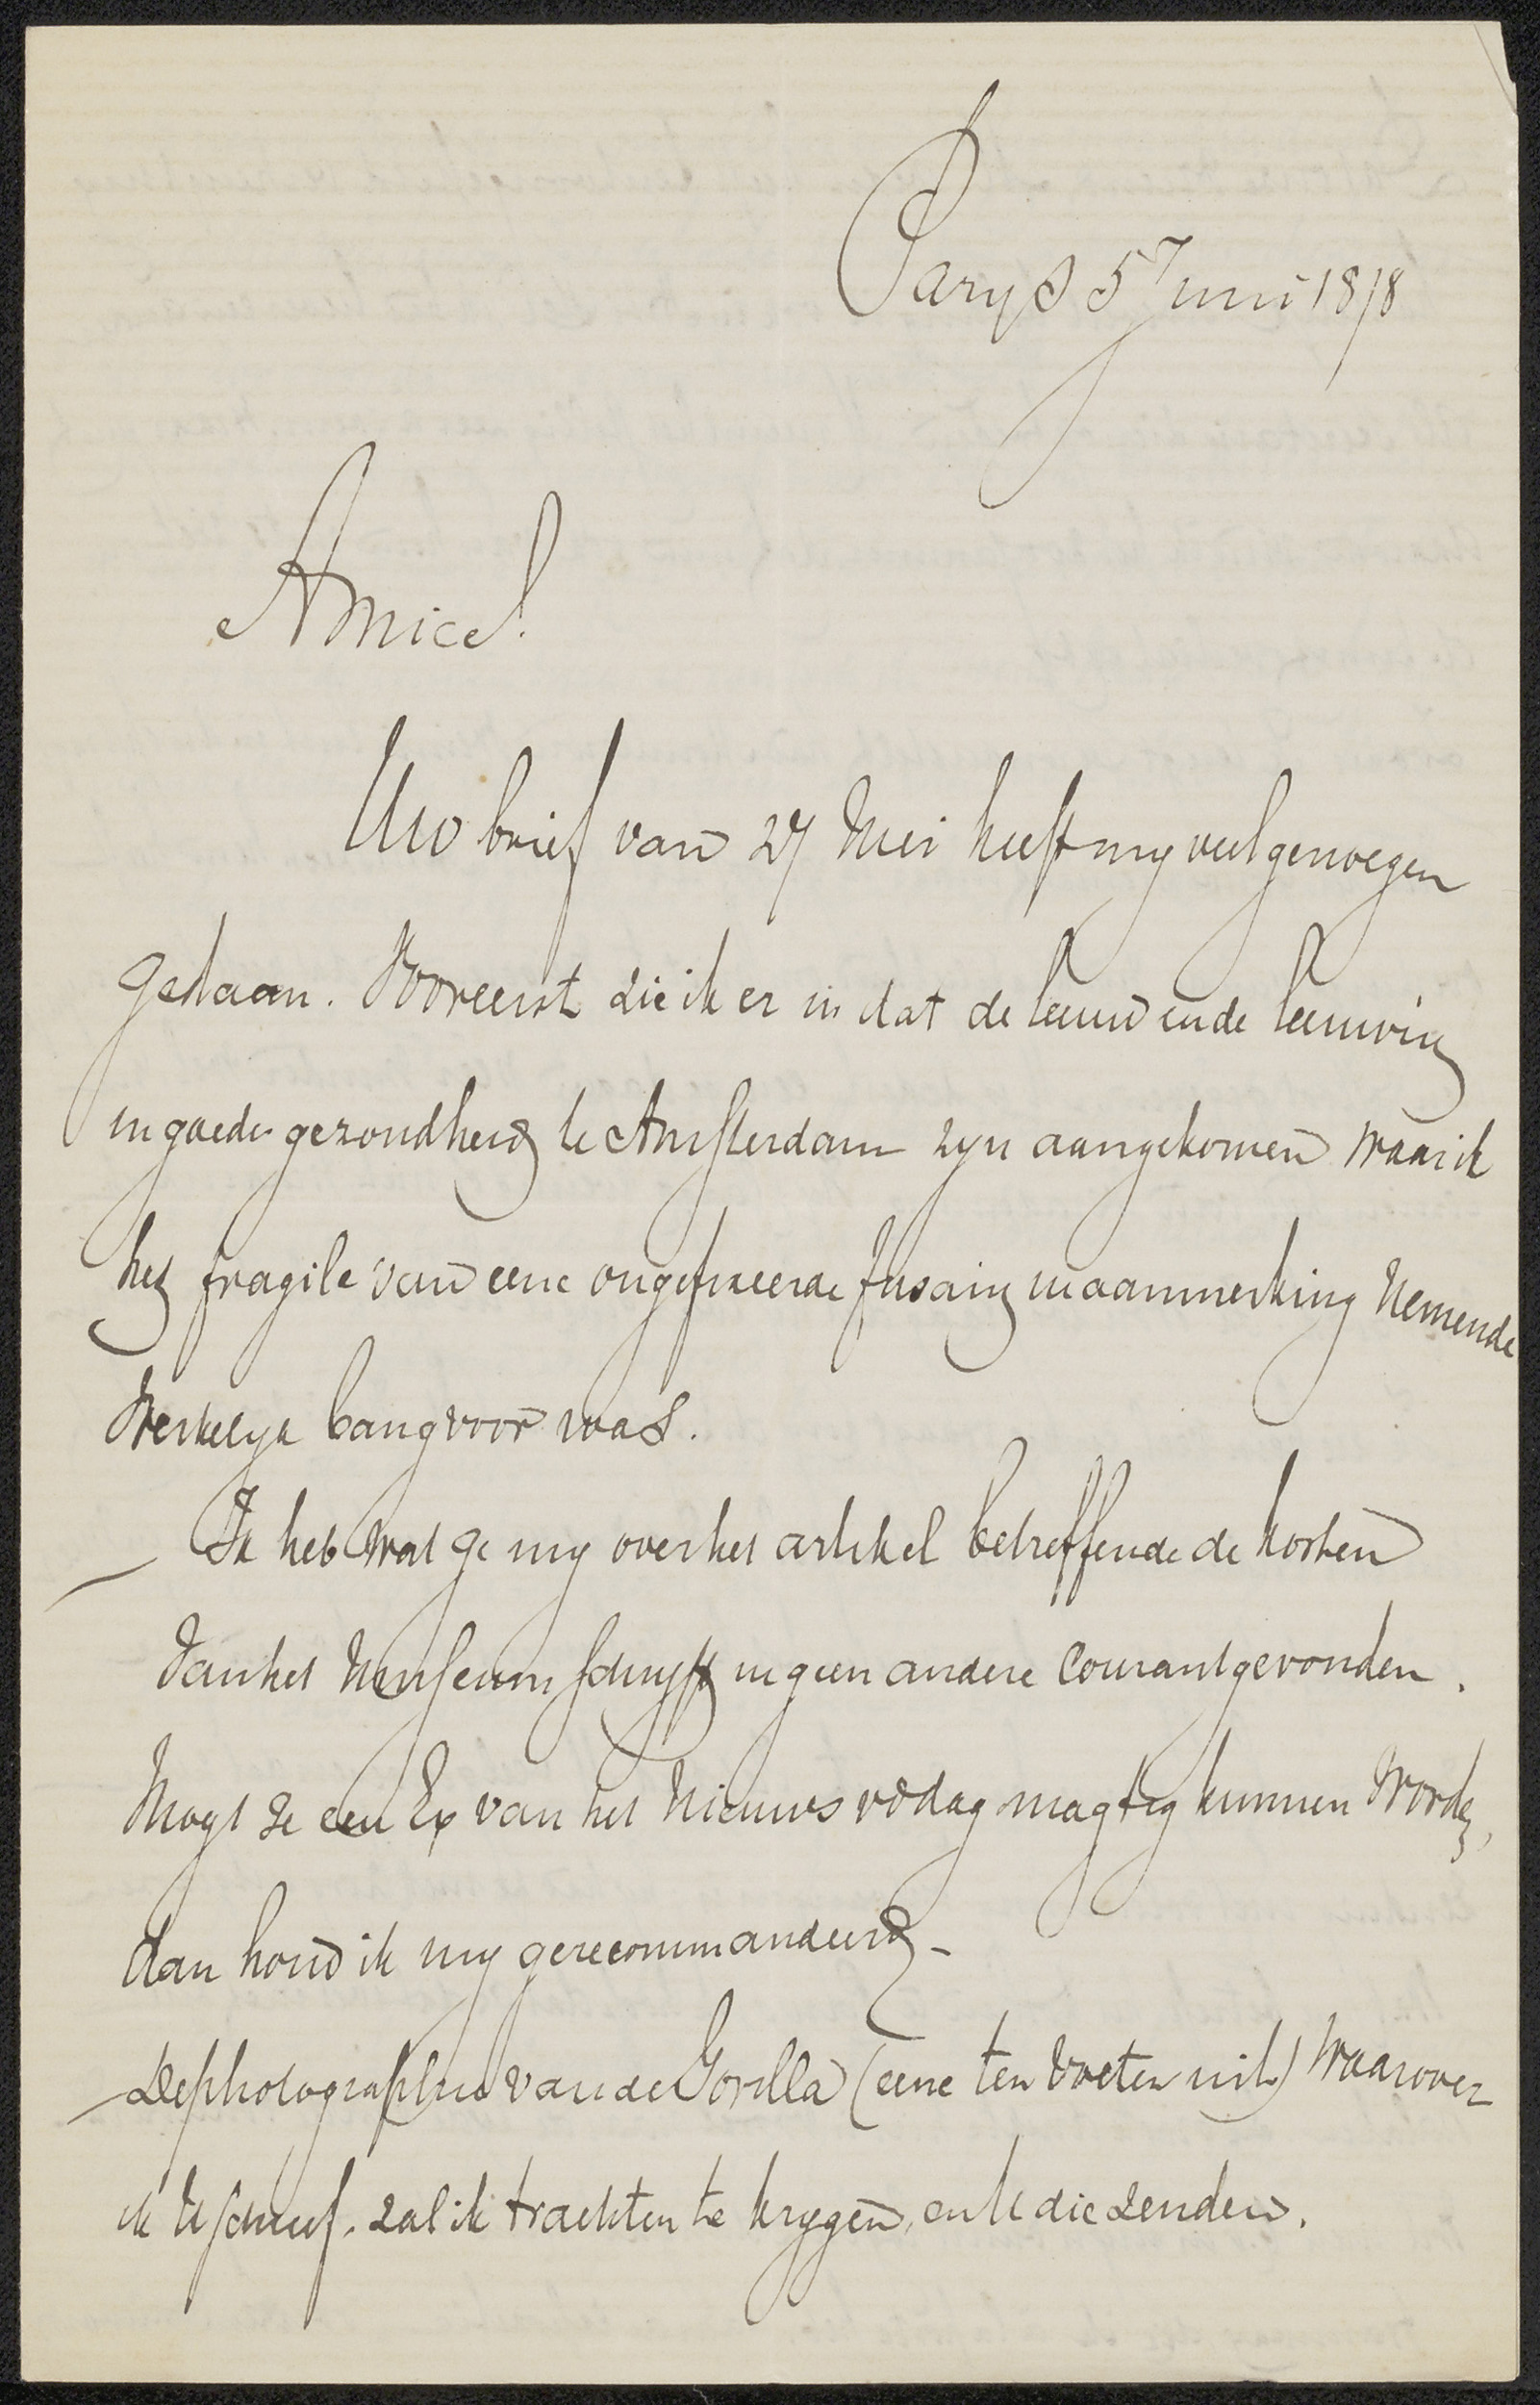 Parys 5 Juni 1878
Amice!
Uw brief van 27 Mei heeft my veel genoegen
gedaan. Vooreerst zie ik er in dat de leeuw en de leeuwin
in goede gezondheid te Amsterdam zyn aangekomen waar ik
het fragile van eene ongefixeerde fusain in aanmerking nemende
werkelyk bang voor was.
Ik heb wat ge my over het artikel betreffende de kosten
van het Museum schryft in geen andere courant gevonden.
Mogt ge een Ex van het Nieuws vd dag magtig kunnen worden,
dan houd ik my gerecommandeerd –
– De photographie van de Gorilla (eene ten voeten uit) waarover
ik U schreef. zal ik trachten te krygen, en U die zenden.